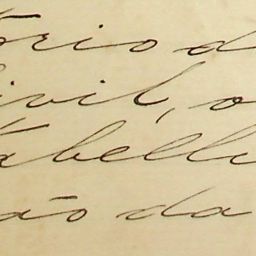 ório d
ivil, o
abelli
ão da